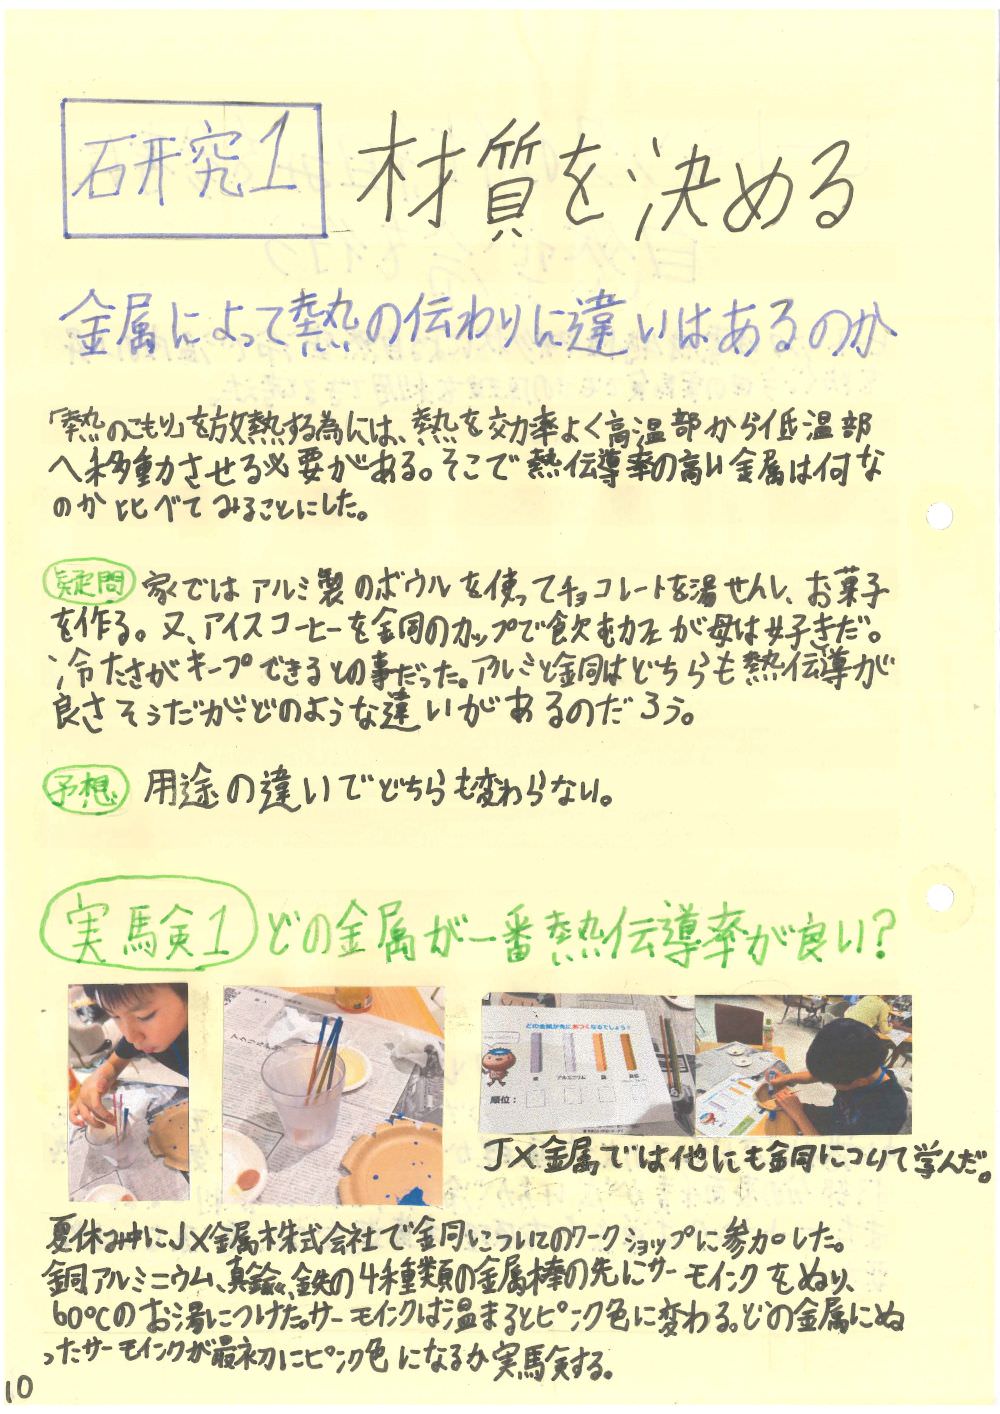 研究1 材質を決める
金属によって熱の伝わりに違いはあるのか
「熱のこもり」を放熱する為には、熱を効率よく高温部から低温部
へ移動させる必要がある。そこで熱伝導率の高い金属は何な
のか比べてみることにした。
疑問 家ではアルミ製のボウルを使ってチョコレートを湯せんし、お菓子
を作る。又、アイスコーヒーを銅のカップで飲むカフェが母は好きだ。
冷たさがキープできるとの事だった。アルミと銅はどちらも熱伝導が
良さそうだが、どのような違いがあるのだろう。
予想 用途の違いでどちらも変わらない。
実験1 どの金属が一番熱伝導率が良い?
どの金属が先にあつくなるでしょう?
鉄 アルミニウム 銅 真鍮
順位:
JX金属では他にも銅について学んだ。
夏休み中にJX金属株式会社で銅についてのワークショップに参加した。
銅、アルミニウム、真鍮、鉄の4種類の金属棒の先にサーモインクをぬり、
60℃のお湯につけた。サーモインクは温まるとピンク色に変わる。どの金属にぬ
ったサーモインクが最初にピンク色になるか実験する。
10